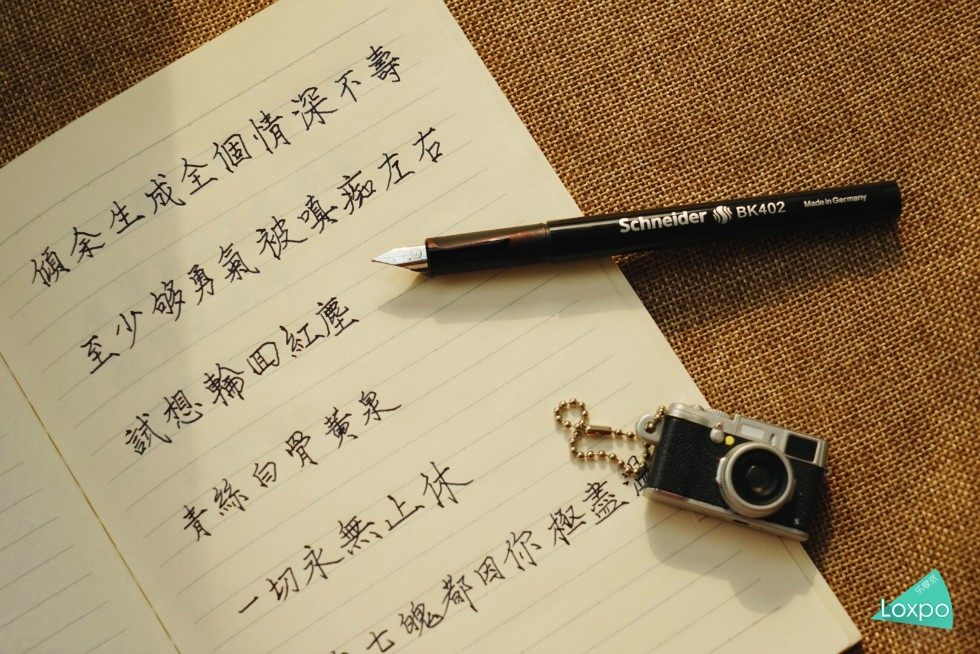 傾余生成全個情深不壽
至少够勇氣被嗔痴左右
試想輪回紅塵
青絲白骨黃泉
一切永無止休
七魄都因你極盡
Schneider BK402 Made in Germany
乐享派
Loxpo